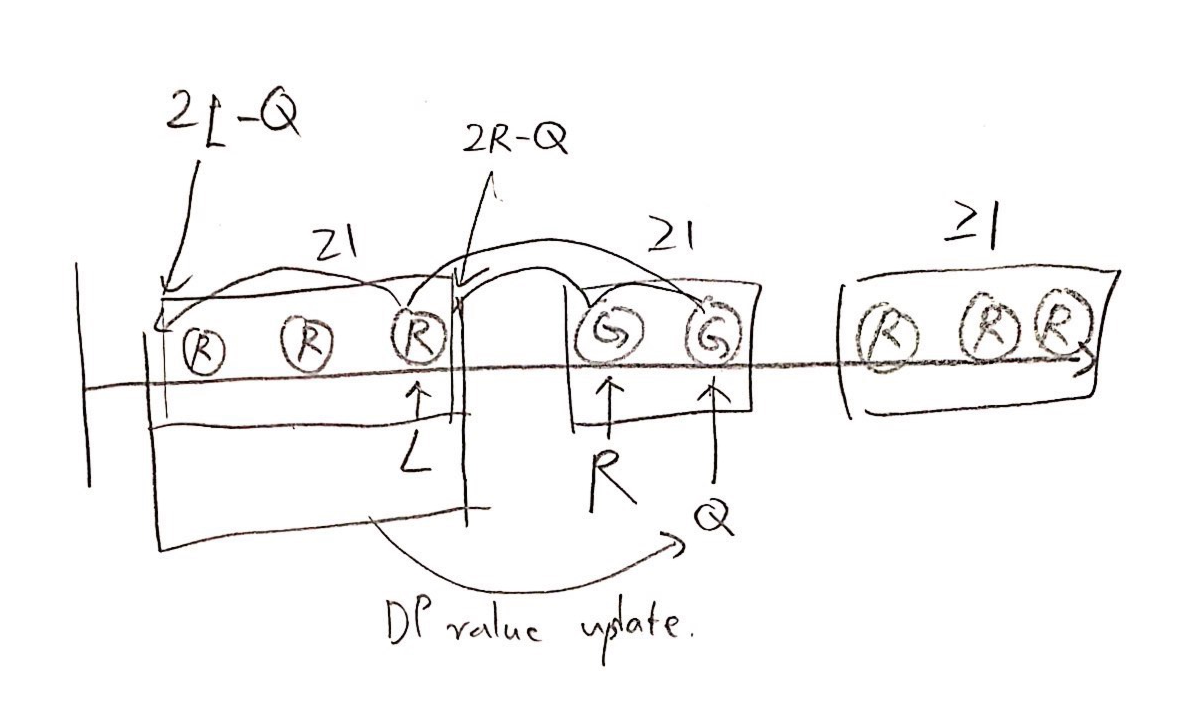 2L-Q
2R-Q
≥1
≥1
≥1
R R R G G R R R
L
R
Q
DP value update.